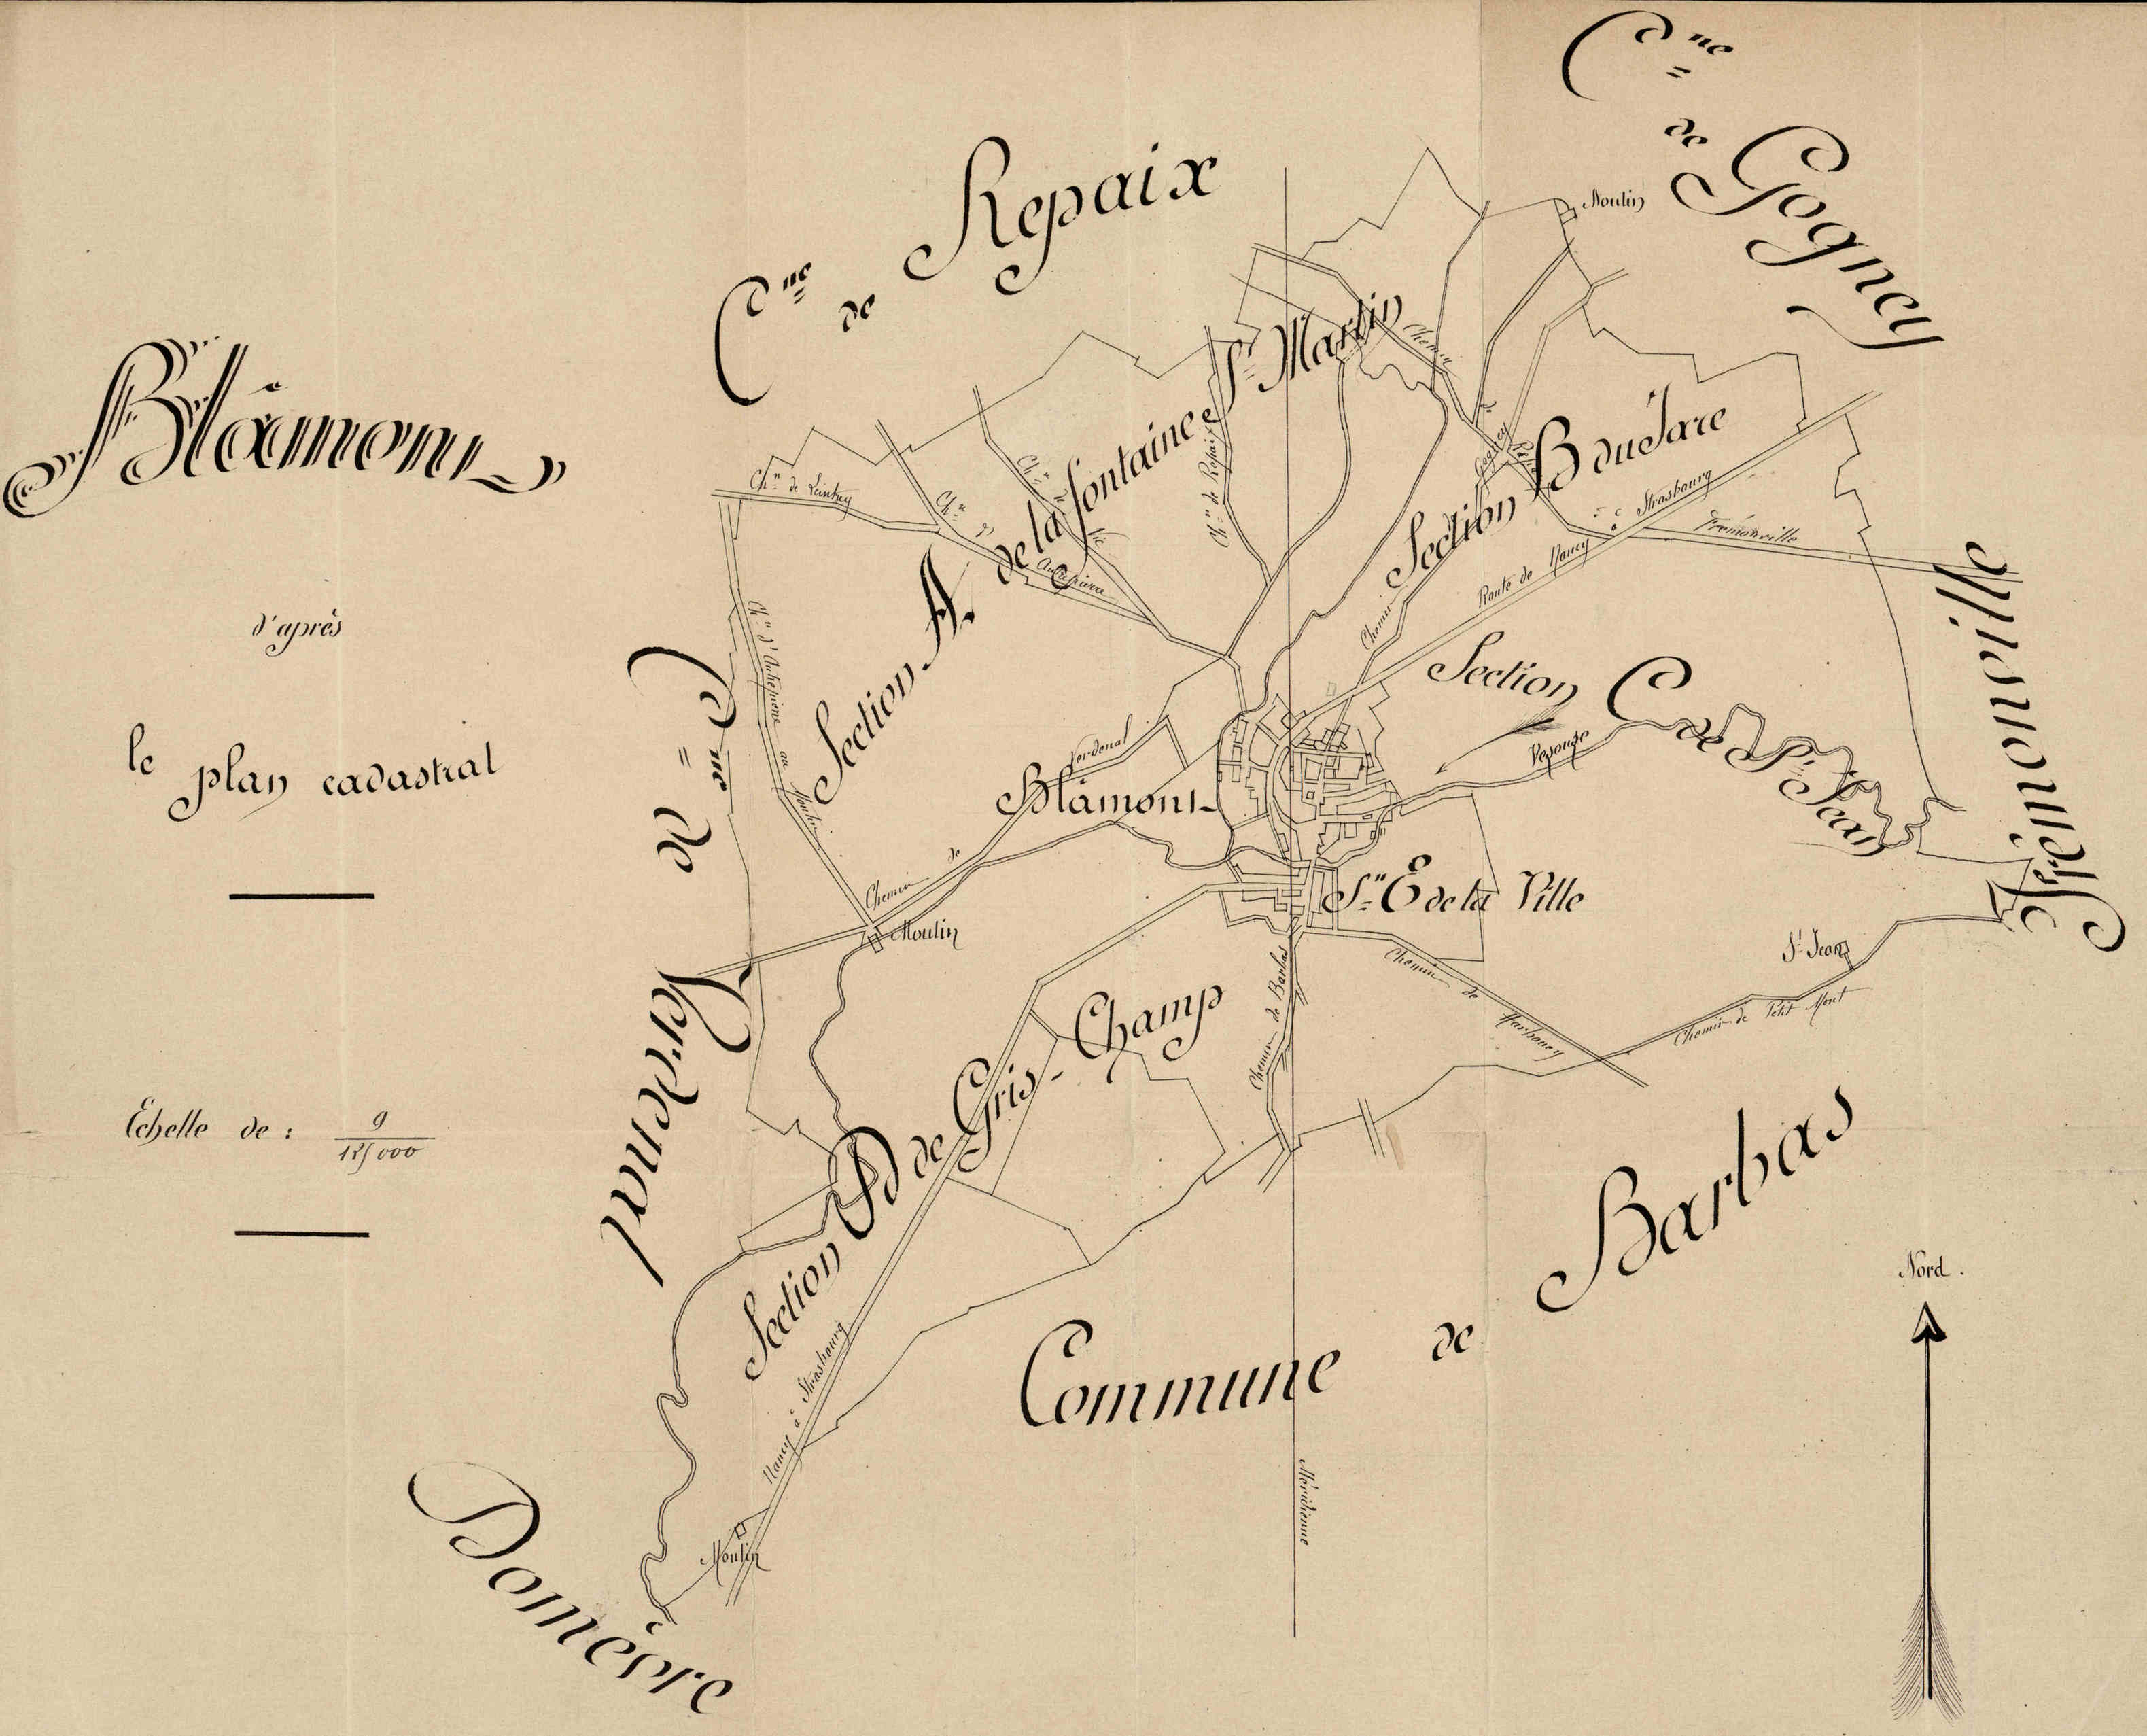 Blâmont
d'après
le plan cadastral
Echelle de : 9/125000
Cne de Repaix
Cne de Gogney
Moulin
Section A. de la fontaine St Martin
Chn de Leintrey
Chn d' Autrepierre
Chn de Vic
Chn de Repaix
Chemin
Section B
Chemin de Gogney
Route de Nancy à Strasbourg
Frémonville
Frémonville
Section C de St Jean
Vezouze
Chn d'Autrepierre au Moulin
Cne de Verdenal
Chemin de Verdenal
Blâmont
Sn E de la Ville
Moulin
Section D de Gris-Champ
Chemin de Barbas
Chemin de Harbouey
St Jean
Chemin de Petit Mont
Nancy à Strasbourg
Moulin
Commune de Barbas
Domèvre
Méridienne
Nord.